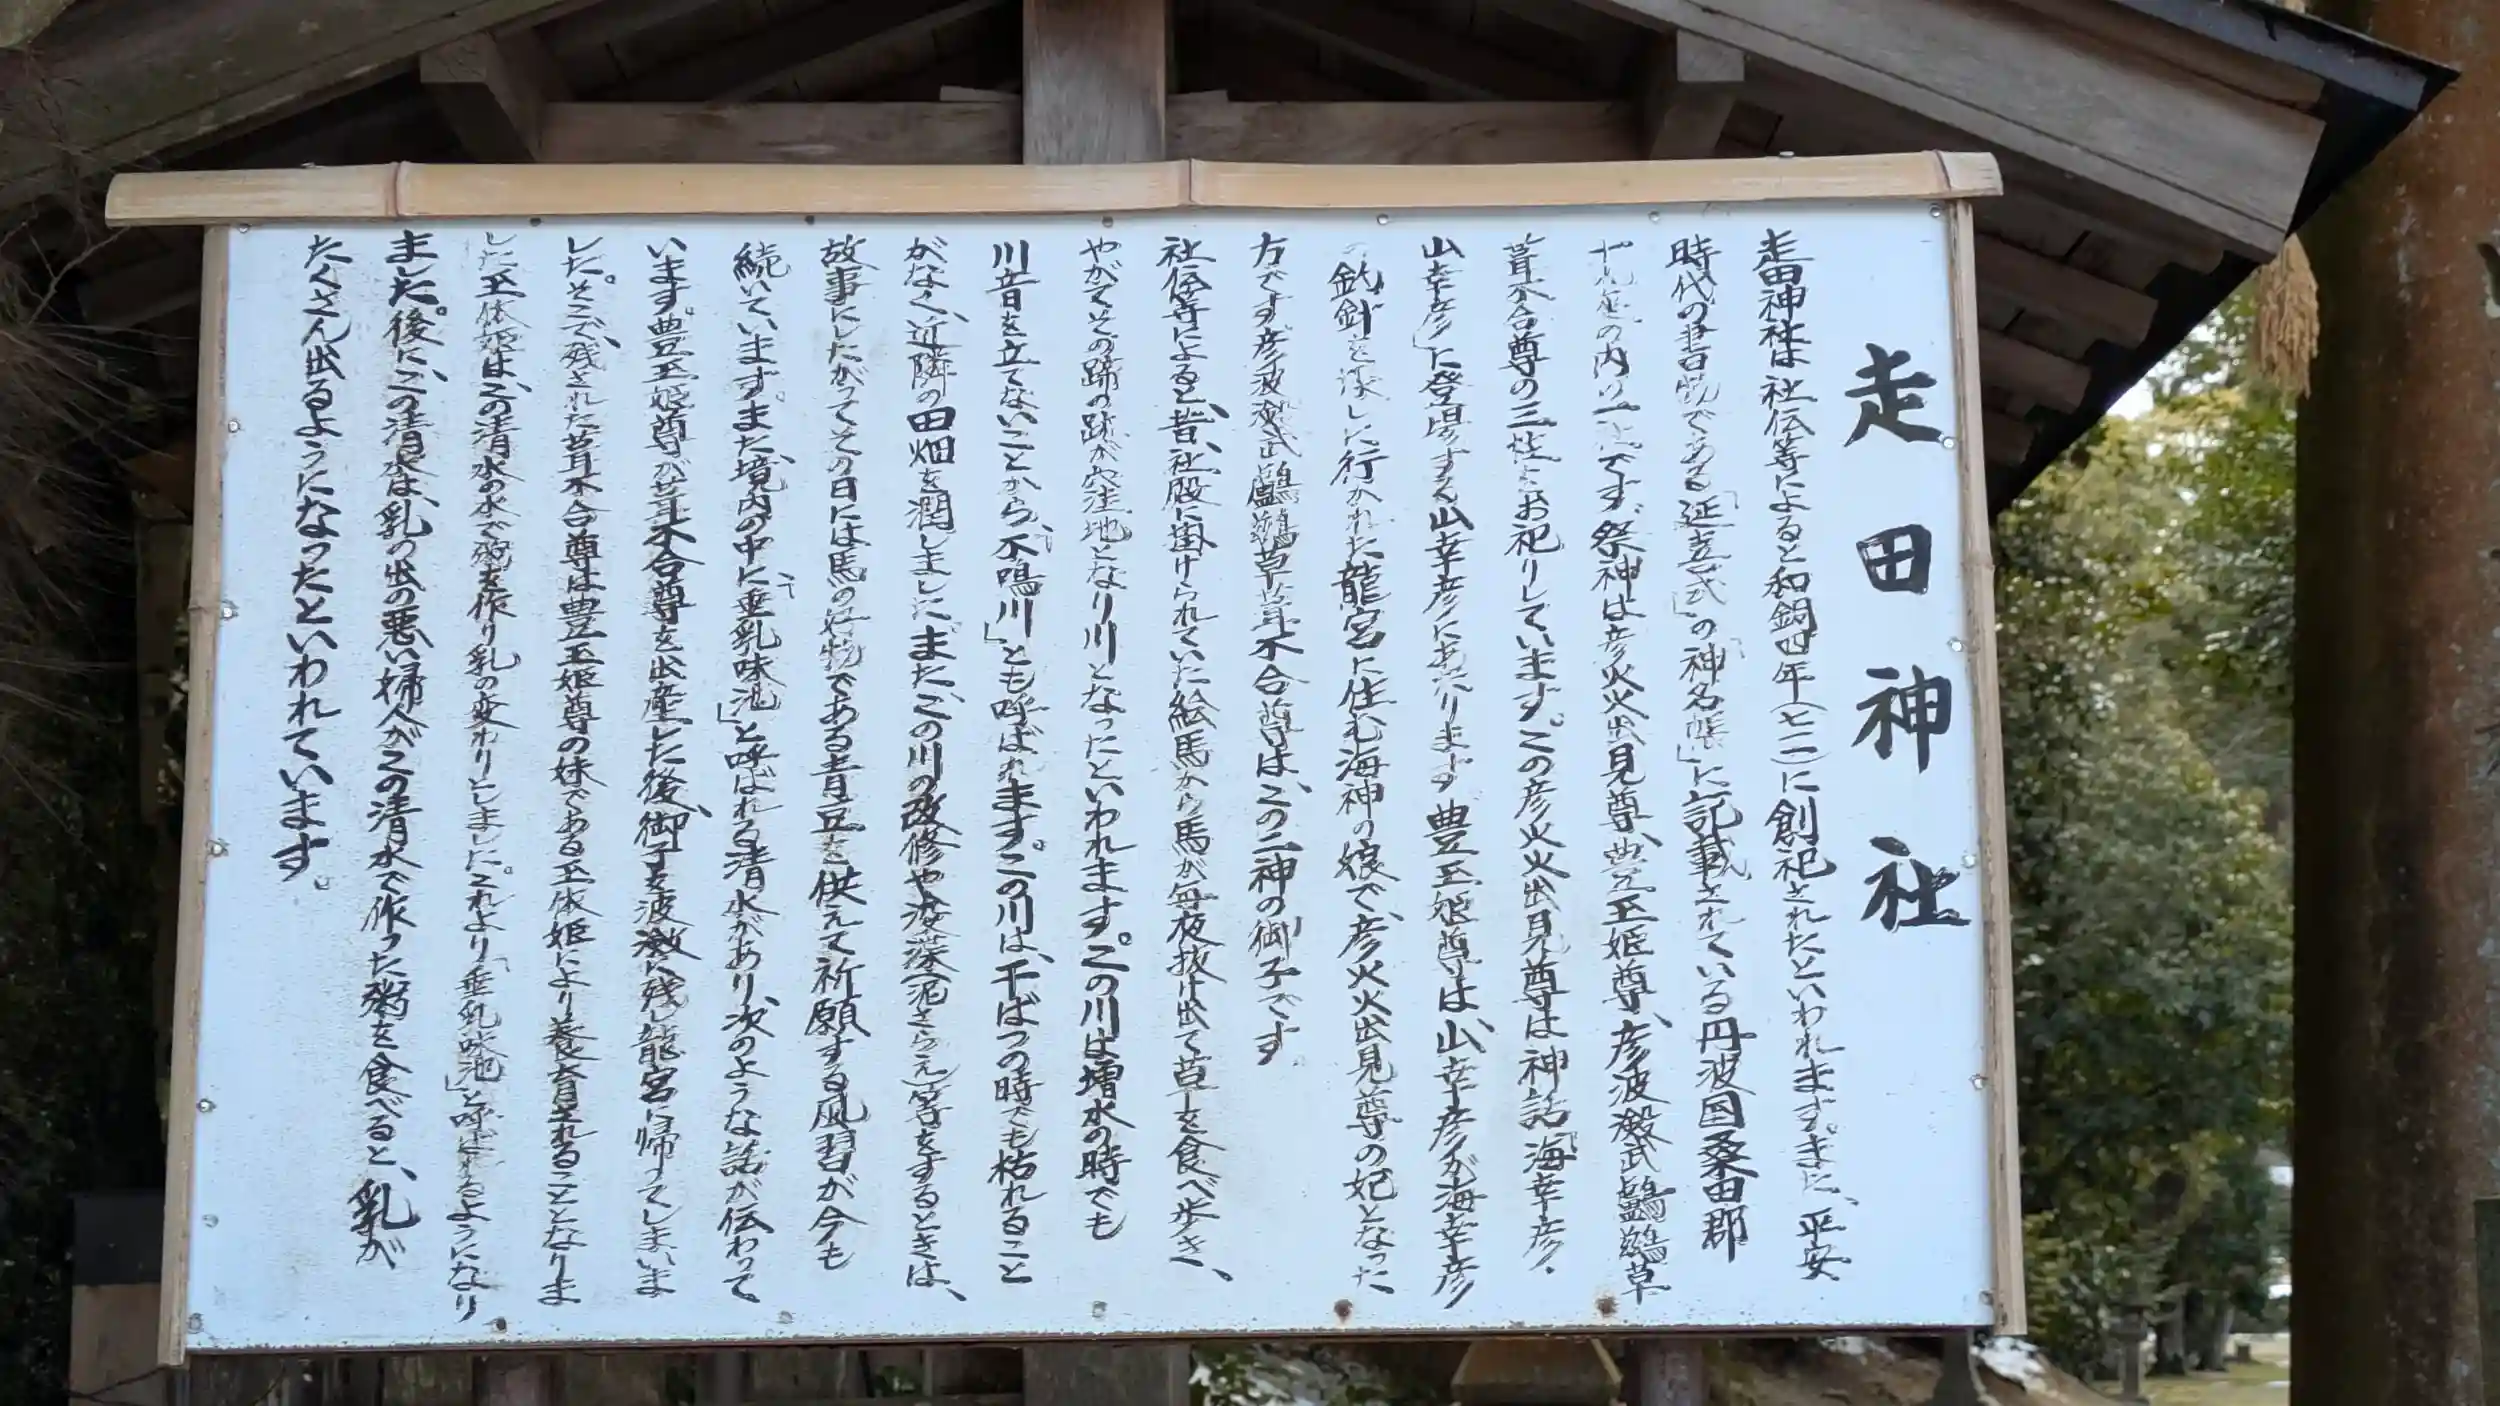 走田神社
走田神社は社伝等によると和銅四年(七一一)に創祀されたといわれます。また、平安
時代の書物である「延喜式」の「神名帳」に記載されている丹波国桑田郡
の内の一社です。祭神は彦火火出見尊、豊玉姫尊、彦波瀲武鸕鷀草
葺不合尊の三柱をお祀りしています。この彦火火出見尊は神話「海幸彦・
山幸彦」に登場する山幸彦にあたります。豊玉姫尊は、山幸彦が海幸彦
の釣針を探しに行かれた龍宮に住む海神の娘で、彦火火出見尊の妃となった
方です。彦波瀲武鸕鷀草葺不合尊は、この二神の御子です。
社伝等によると、昔、社殿に掛けられていた絵馬から馬が毎夜抜け出て草を食べ歩き、
やがてその蹄の跡が穴洼地となり川となったといわれます。この川は増水の時でも
川音を立てないことから、「不鳴川」とも呼ばれます。この川は、干ばつの時でも枯れること
がなく、近隣の田畑を潤しました。また、この川の改修や浚渫(泥さらえ)等をするときは、
故事にしたがってその日には馬の好物である青豆を供えて祈願する風習が今も
続いています。また、境内の中に「垂乳味池」と呼ばれる清水があり、次のような話が伝わって
います。豊玉姫尊が葺不合尊を出産した後、御子を波瀲に残し龍宮に帰ってしまいま
した。そこで、残された葺不合尊は豊玉姫尊の妹である玉依姫により養育されることとなりま
した玉依姫は、この清水の水で粥を作り乳の変わりとしました。これより「垂乳味池」と呼ばれるようになり
ました。後に、この清水は、乳の出の悪い婦人がこの清水で作った粥を食べると、乳が
たくさん出るようになったといわれています。